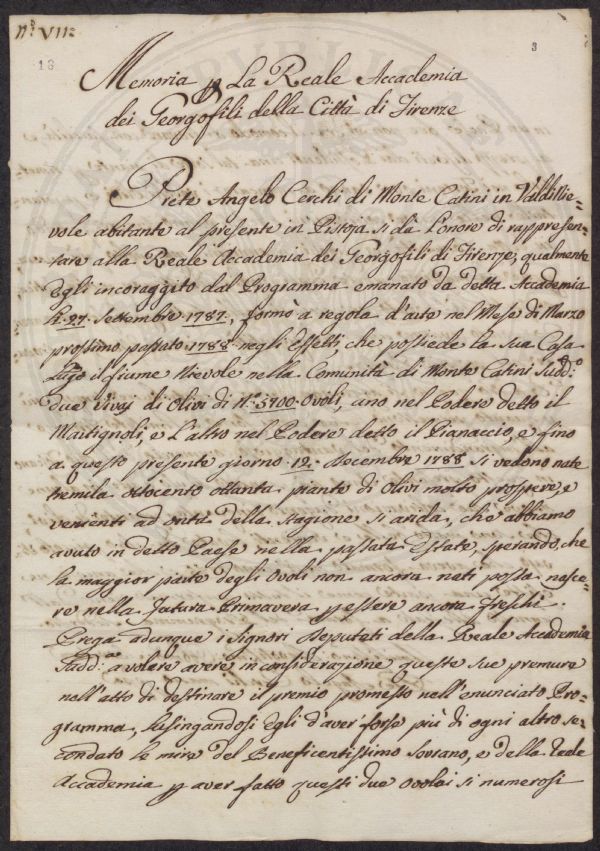 N.º VII.º
18
3
Memoria p La Reale Accademia
dei Georgofili della Città di Firenze
Prete Angelo Cerchi di Monte Catini in Valdinie-
vole abitante al presente in Pistoja si dà L'onore di rappresen-
tare alla Reale Accademia dei Georgofili di Firenze, qualmente
Egli incoraggito dal Programma emanato da detta Accademia
27. Settembre 1787., formò a regola d'arte nel Mese di Marzo
prossimo passato 1788. negli Effetti, che possiede la sua Casa
Lugo il fiume Nievole nella Comunità di Monte Catini Sudd.º
due Vivaj di Olivi di N.º 5700. Ovoli, uno nel Podere detto il
Martignoli, e L'altro nel Podere detto il Pianaccio, e fino
a questo presente giorno 12. Decembre 1788 si vedono nate
tremila Ottocento Ottanta piante di Olivi molto prospere, e
venienti ad della Stagione sì arida, che abbiamo
avuto in detto Paese nella passata Estate, sperando, che
la maggior parte degli Ovoli non ancora nati possa nasce-
re nella futura Primavera p essere ancora freschi.
Prega adunque i Signori Deputati della Reale Accademia
Sudd.ª a volere avere in considerazione queste sue premure
nell'atto di destinare il premio promesso nell'enunciato Pro-
gramma, lusingandosi Egli d'aver forse più di ogni altro se-
condato le mire del Beneficentissimo Sovrano, e della Reale
Accademia p aver fatto questi due Ovolai sì numerosi